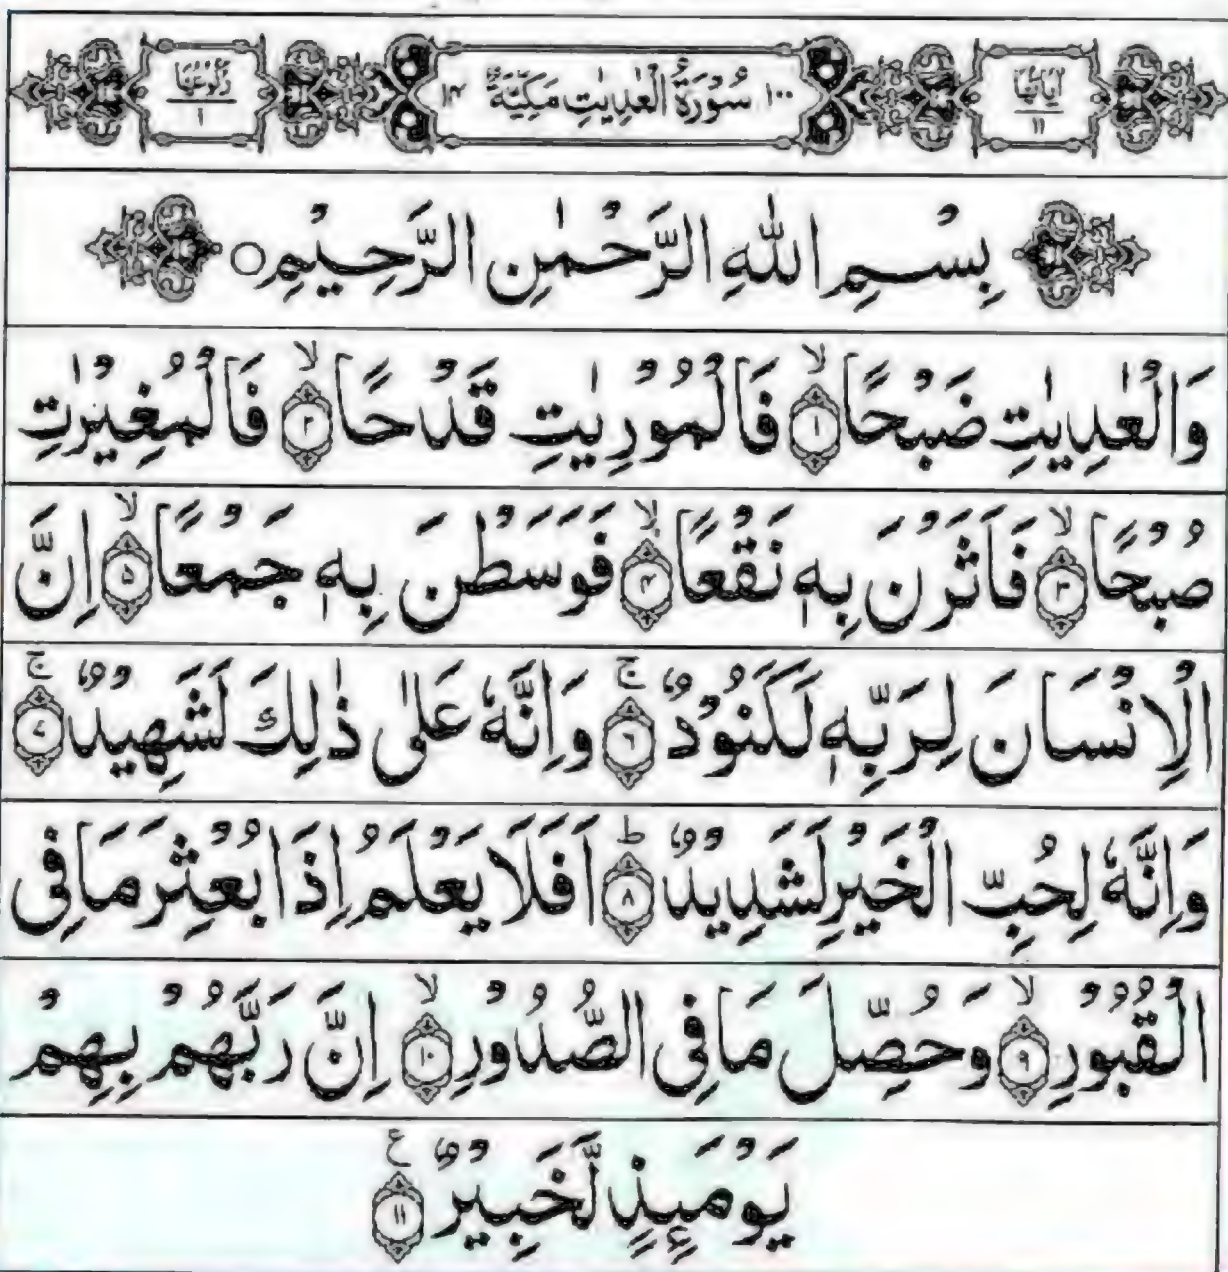 اٰيَاتُهَا ١١ ١٠٠ سُوْرَةُ الْعٰدِيٰتِ مَكِّيَّةٌ ١٤ رُكُوْعُهَا ١
بِسْمِ اللّٰهِ الرَّحْمٰنِ الرَّحِيْمِ
وَالْعٰدِيٰتِ ضَبْحًا ۙ﴿۱﴾ فَالْمُوْرِيٰتِ قَدْحًا ۙ﴿۲﴾ فَالْمُغِيْرٰتِ
صُبْحًا ۙ﴿۳﴾ فَاَثَرْنَ بِهٖ نَقْعًا ۙ﴿۴﴾ فَوَسَطْنَ بِهٖ جَمْعًا ۙ﴿۵﴾ اِنَّ
الْاِنْسَانَ لِرَبِّهٖ لَكَنُوْدٌ ۚ﴿۶﴾ وَاِنَّهٗ عَلٰى ذٰلِكَ لَشَهِيْدٌ ۚ﴿۷﴾
وَاِنَّهٗ لِحُبِّ الْخَيْرِ لَشَدِيْدٌ ؕ﴿۸﴾ اَفَلَا يَعْلَمُ اِذَا بُعْثِرَ مَا فِى
الْقُبُوْرِ ۙ﴿۹﴾ وَحُصِّلَ مَا فِى الصُّدُوْرِ ۙ﴿۱۰﴾ اِنَّ رَبَّهُمْ بِهِمْ
يَوْمَىِٕذٍ لَّخَبِيْرٌ ﴿۱۱﴾ ع